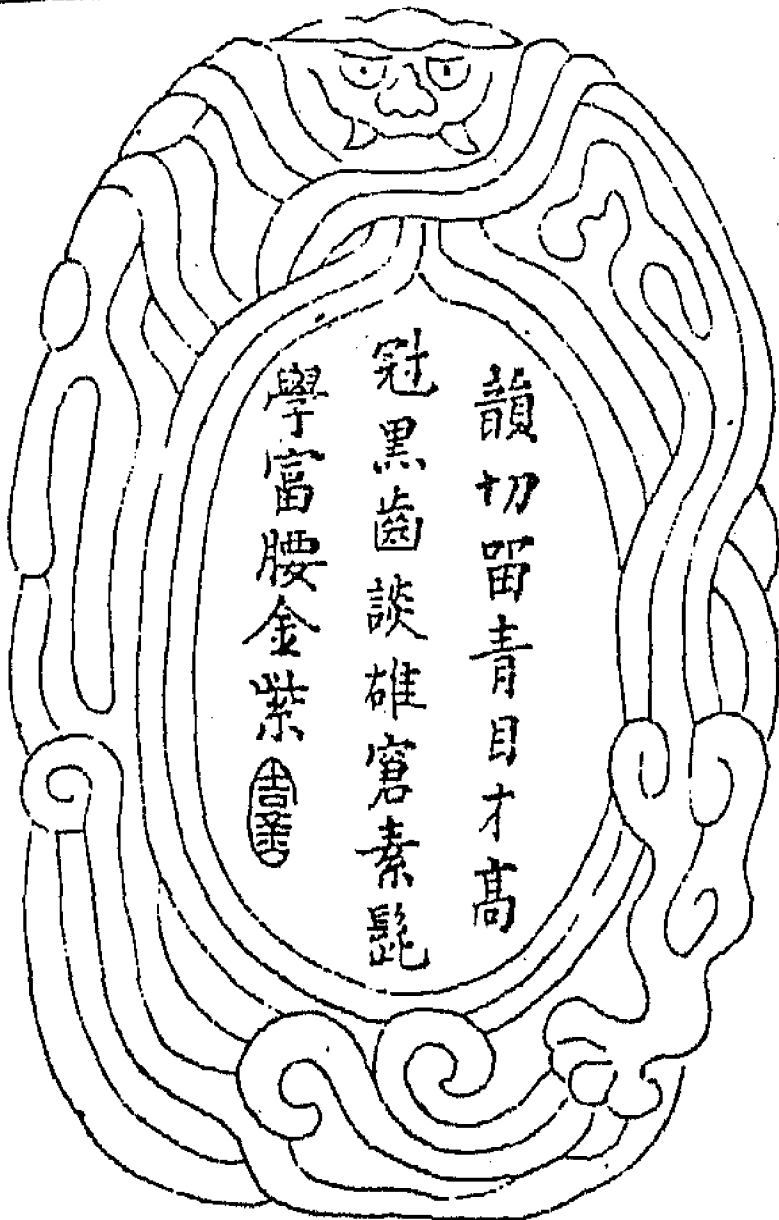 韻切留青目才高
冠黑齒談雄窘素髭
學富腰金紫
吉善